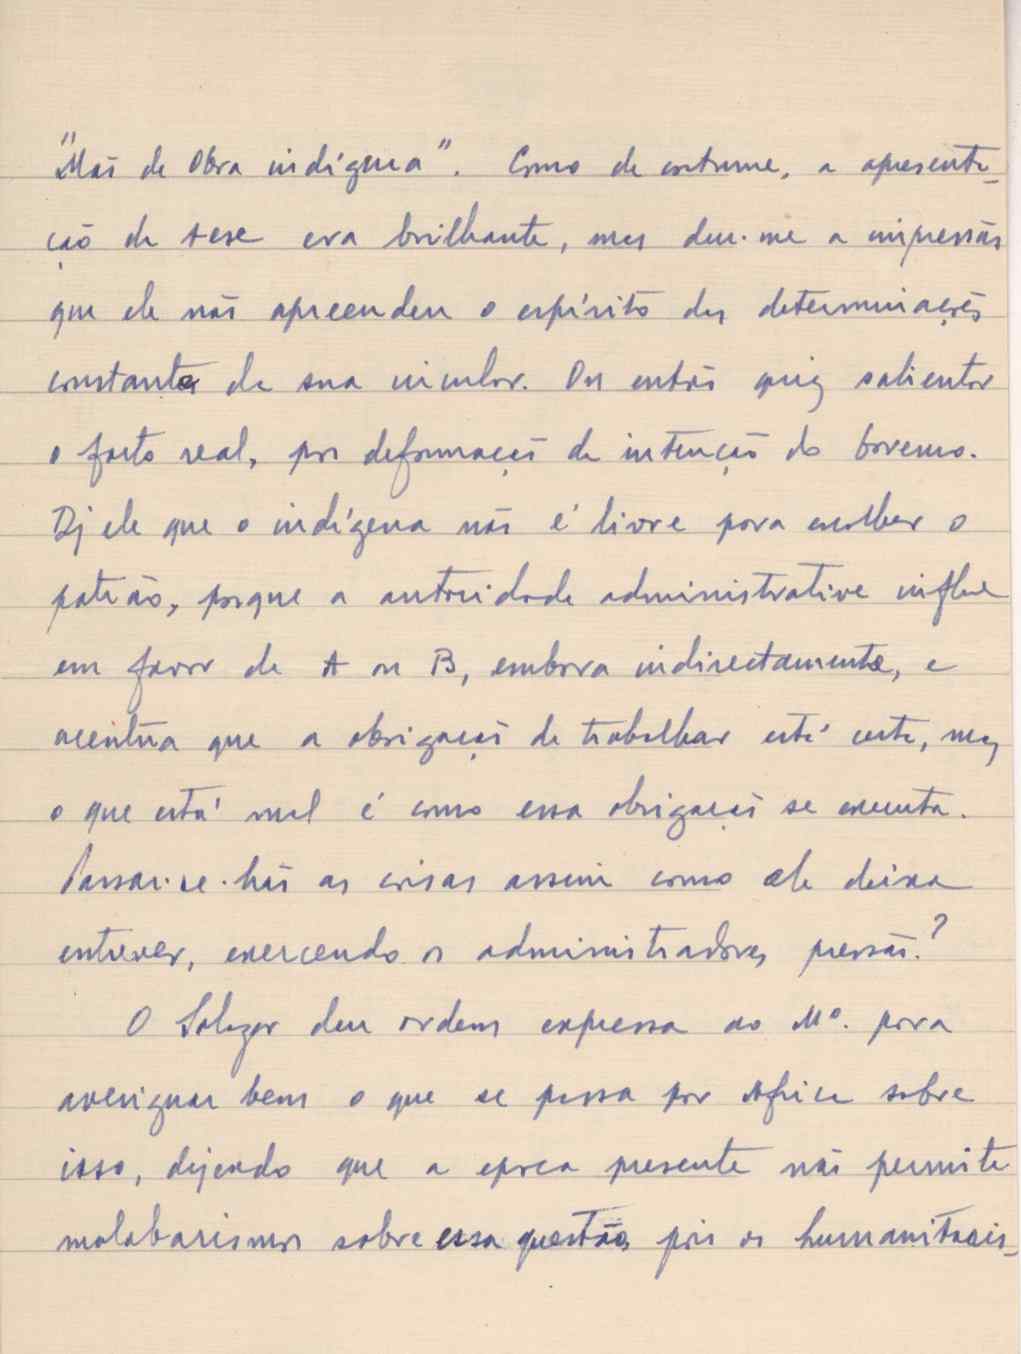 "Mão de Obra indígena". Como de costume, a apresenta-
ção da tese era brilhante, mas deu-me a impressão
que ele não apreendeu o espírito das determinações
constantes da sua circular. Ou então quiz salientar
o facto real, por deformação da intenção do Governo.
Diz ele que o indígena não é livre para escolher o
patrão, porque a autoridade administrativa influe
em favor de A ou B, embora indirectamente, e
acentúa que a obrigação de trabalhar está certa, mas
o que está mal é como essa obrigação se executa.
Passar-se-hão as coisas assim como ele deixa
entrever, exercendo os administradores pressão?
O Salazar deu ordem expressa ao Mº. para
averiguar bem o que se passa por Africa sobre
isso, dizendo que a epoca presente não permite
malabarismos sobre essa questão, pois os humanitaris-